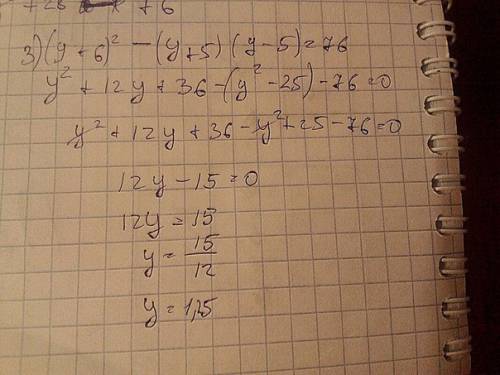 +76
3) (y + 6)² - (y + 5) (y - 5) = 76
y² + 12y + 36 - (y² - 25) - 76 = 0
y² + 12y + 36 - y² + 25 - 76 = 0
12y - 15 = 0
12y = 15
y = 15/12
y = 1,25